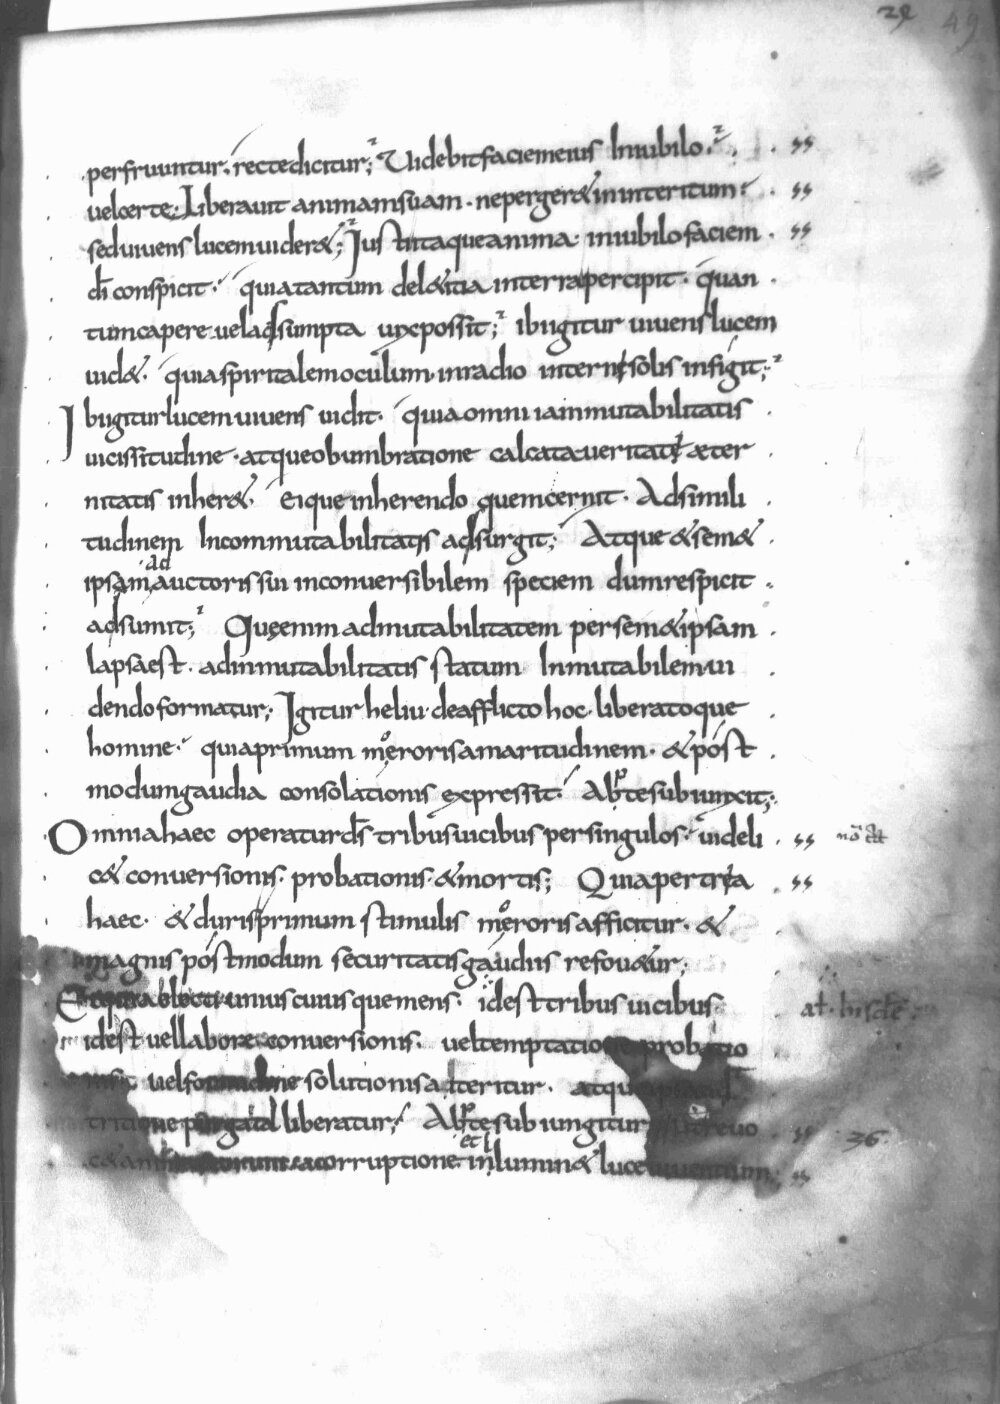 29 49
perfruuntur. recte dicitur; Uidebit faciem eius In iubilo.
uel certe; Liberauit animam suam. ne pergeret in interitum.
sed uiuens lucem uideret; Iusti itaque anima. in iubilo faciem
di conspicit. quia tantum deletitia in terra percipit. quan
tum capere. uel adsumpta uix possit; ibi igitur uiuens lucem
uidet. quia spiritalem oculum. in radio interni solis insigit;
Ibi igitur lucem uiuens uidit. quia omni iam mutabilitatis
uicissitudine. atque obumbratione calcata ueritati æter
nitatis inheret. Eique inherendo quem cernit. Ad simili
tudinem Incommutabilitatis adsurgit; Atque et semet
ipsam ad auctoris sui inconuersibilem speciem dum respicit
adsumit; Quę enim ad mutabilitatem per semet ipsam
lapsa est. ad inmutabilitatis statum Inmutabilem ui
dendo formatur; Igitur heliu. de afflicto hoc. liberatoque
homine. quia primum meroris amaritudinem. et post
modum gaudia consolationis expressit. Apte subiunxit;
Omnia haec operatur ds tribus uicibus per singulos. uideli
cet conuersionis. probationis. et mortis; Quia per tria
haec. et duris primum stimulis meroris afficitur. et
magnis postmodum securitatis gaudiis refouetur;
unus cuiusque mens. id est tribus uicibus.
id est uel labore conuersionis. uel temptatione probatio
nis. uel formidine solutionis atteritur. atque
tritione purgata liberatur; Apte subiungitur Ut reuo
cet corruptione. et inluminet luce uiuentium;
36